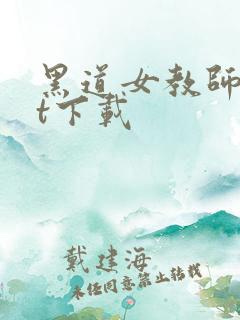 黑道女教師
t下載
戴建海
未经同意禁止转载